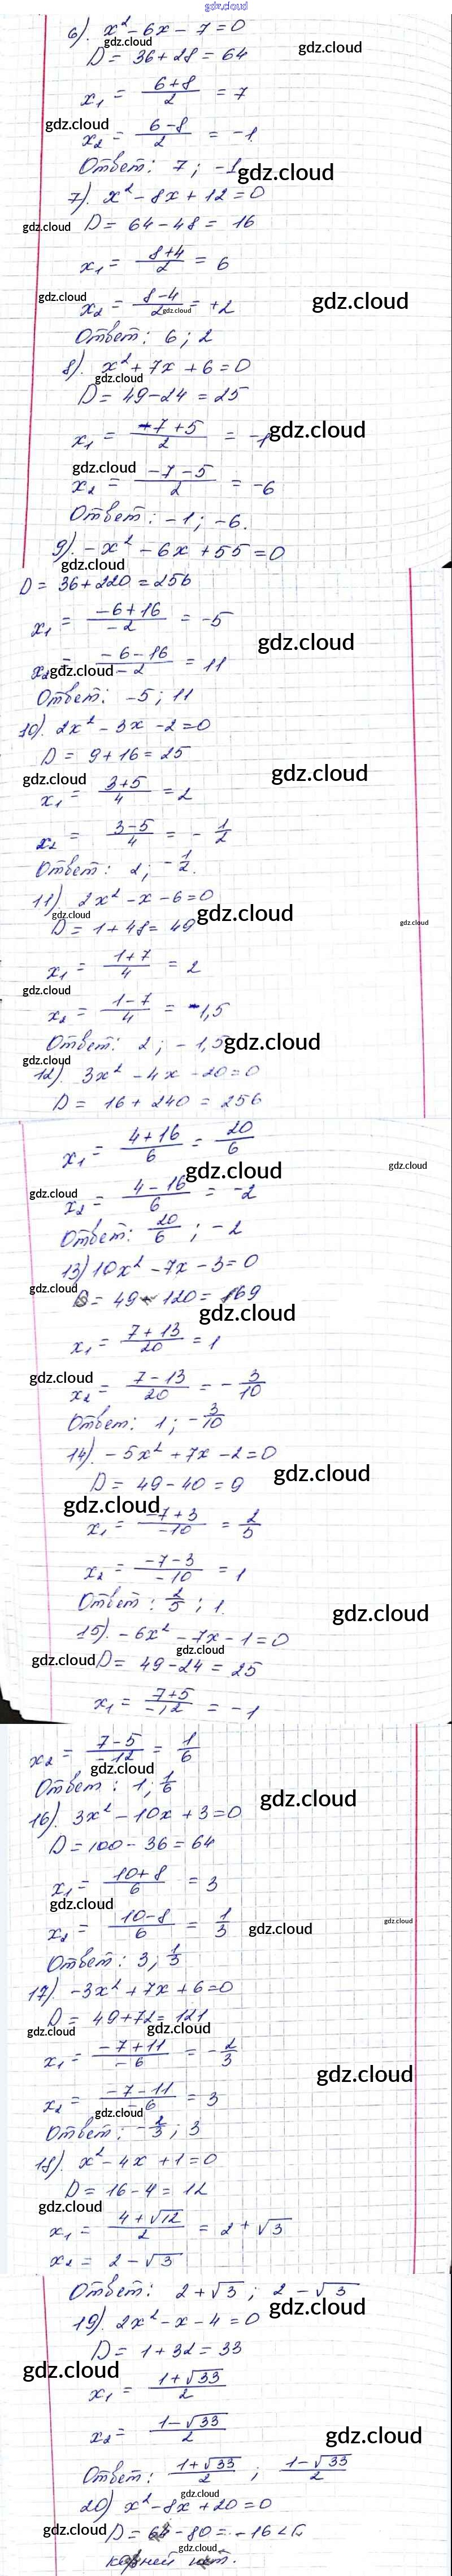 gdz.cloud
6). x² - 6x - 7 = 0
gdz.cloud
D = 36 + 28 = 64
gdz.cloud
x₁ = (6+8)/2 = 7
gdz.cloud
x₂ = (6-8)/2 = -1
Ответ: 7; -1
gdz.cloud
7). x² - 8x + 12 = 0
gdz.cloud
D = 64 - 48 = 16
x₁ = (8+4)/2 = 6
gdz.cloud
x₂ = (8-4)/2 = +2
gdz.cloud
gdz.cloud
Ответ: 6; 2
8). x² + 7x + 6 = 0
gdz.cloud
D = 49 - 24 = 25
x₁ = (-7+5)/2 = -1
gdz.cloud
gdz.cloud
x₂ = (-7-5)/2 = -6
Ответ: -1; -6.
9). -x² - 6x + 55 = 0
gdz.cloud
D = 36 + 220 = 256
x₁ = (-6+16)/-2 = -5
gdz.cloud
x₂ = (-6-16)/-2 = 11
gdz.cloud
Ответ: -5; 11
10). 2x² - 3x - 2 = 0
D = 9 + 16 = 25
gdz.cloud
gdz.cloud
x₁ = (3+5)/4 = 2
x₂ = (3-5)/4 = -1/2
Ответ: 2; -1/2.
11) 2x² - x - 6 = 0
gdz.cloud
gdz.cloud
gdz.cloud
D = 1 + 48 = 49
x₁ = (1+7)/4 = 2
gdz.cloud
x₂ = (1-7)/4 = -1,5
Ответ: 2; -1,5
gdz.cloud
gdz.cloud
12). 3x² - 4x - 20 = 0
D = 16 + 240 = 256
x₁ = (4+16)/6 = 20/6
gdz.cloud
gdz.cloud
gdz.cloud
x₂ = (4-16)/6 = -2
Ответ: 20/6; -2
13) 10x² - 7x - 3 = 0
gdz.cloud
D = 49 + 120 = 169
gdz.cloud
x₁ = (7+13)/20 = 1
gdz.cloud
x₂ = (7-13)/20 = -3/10
Ответ: 1; -3/10
14). -5x² + 7x - 2 = 0
gdz.cloud
D = 49 - 40 = 9
gdz.cloud
x₁ = (-7+3)/-10 = 2/5
x₂ = (-7-3)/-10 = 1
Ответ: 2/5; 1.
gdz.cloud
15). -6x² - 7x - 1 = 0
gdz.cloud
gdz.cloud
D = 49 - 24 = 25
x₁ = (7+5)/-12 = -1
x₂ = (7-5)/-12 = 1/6
gdz.cloud
Ответ: 1; 1/6
gdz.cloud
16). 3x² - 10x + 3 = 0
D = 100 - 36 = 64
x₁ = (10+8)/6 = 3
gdz.cloud
x₂ = (10-8)/6 = 1/3
gdz.cloud
gdz.cloud
Ответ: 3; 1/3
17). -3x² + 7x + 6 = 0
D = 49 + 72 = 121
gdz.cloud
gdz.cloud
x₁ = (-7+11)/-6 = -2/3
gdz.cloud
x₂ = (-7-11)/-6 = 3
gdz.cloud
Ответ: -2/3; 3
18). x² - 4x + 1 = 0
D = 16 - 4 = 12
gdz.cloud
x₁ = (4+√12)/2 = 2+√3
x₂ = 2-√3
Ответ: 2+√3; 2-√3
gdz.cloud
19). 2x² - x - 4 = 0
D = 1 + 32 = 33
gdz.cloud
x₁ = (1+√33)/2
x₂ = (1-√33)/2
gdz.cloud
Ответ: (1+√33)/2; (1-√33)/2
gdz.cloud
20) x² - 8x + 20 = 0
gdz.cloud
D = 64 - 80 = -16 <
gdz.cloud
корней нет.